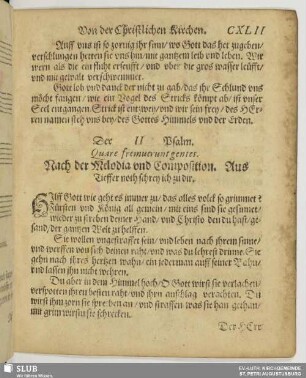 Von der Christlichen Kirchen. CXLII
Auff vns ist so zornig jhr sinn/ wo Gott das het zugeben/
verschlungen hetten sie vns hin/ mit gantzem leib vnd leben. Wir
wern als die ein flut erseufft/ vnd vber die gros wasser leufft/
vnd mit gewalt verschwemmet.
Gott lob vnd danck der nicht zu gab/ das jhr Schlund vns
möcht fangen/ wie ein Vogel des Stricks kömpt ab/ ist vnser
Seel entgangen. Strick ist entzwey/ vnd wir sein frey/ des HEr-
ren namen steh vns bey/ des Gottes Himmels vnd der Erden.
Der II Psalm.
Quare fremuerunt gentes.
Nach der Melodia vnd Composition. Aus
Tieffer noth schrey ich zu dir.
HIlff Gott wie geht es immer zu/ das alles volck so grimmet
Fürsten vnd König all gemein/ mit eins sind sie gesinnet/
wieder zu streben deiner Hand/ vnd Christo den du hast/ ge-
sand/ der gantzen Welt zu helffen.
Sie wollen vngestraffet sein/ vnd leben nach jhrem sinne/
vnd werffen von sich deinen raht/ vnd was du lehrest drinne/ Sie
gehn nach jhres hertzen wahn/ ein jederman auff seiner Bahn/
vnd lassen jhn nicht wehren.
Du aber in dem Himmel hoch/ O Gott wirst sie verlachen/
verspotten jhren besten raht/ vnd jhrn anschlag verachten. Du
wirst jhn zorn sie sprechen an/ vnd straffen was sie han gethan/
mit grim wirstu sie schrecken.
Der HErr
SLUB
Wir führen Wissen.
EV.-LUTH. KIRCHGEMEINDE
ST. PETRI AUGUSTUSBURG